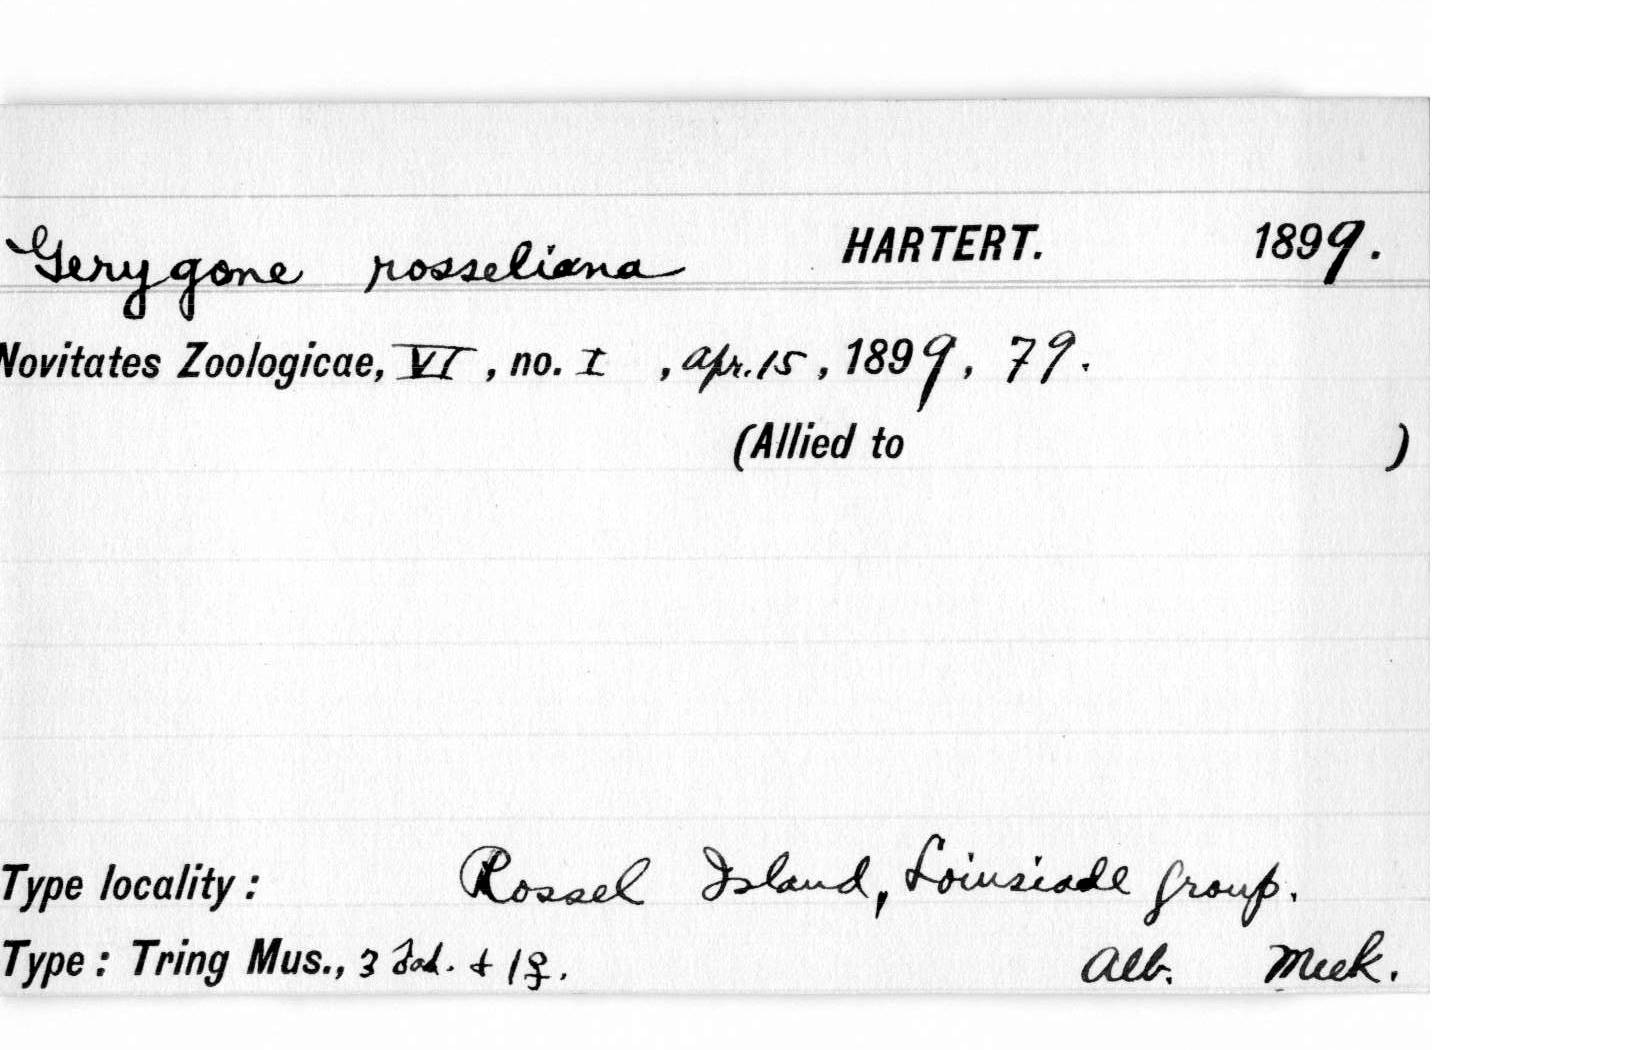 Gerygone rosseliana HARTERT. 1899.
Novitates Zoologicae, VI, no. I, Apr. 15, 1899, 79.
(Allied to )
Type locality: Rossel Island, Loiusiade group.
Type: Tring Mus., 3 ♂ad. & 1♀. Alb. Meek.